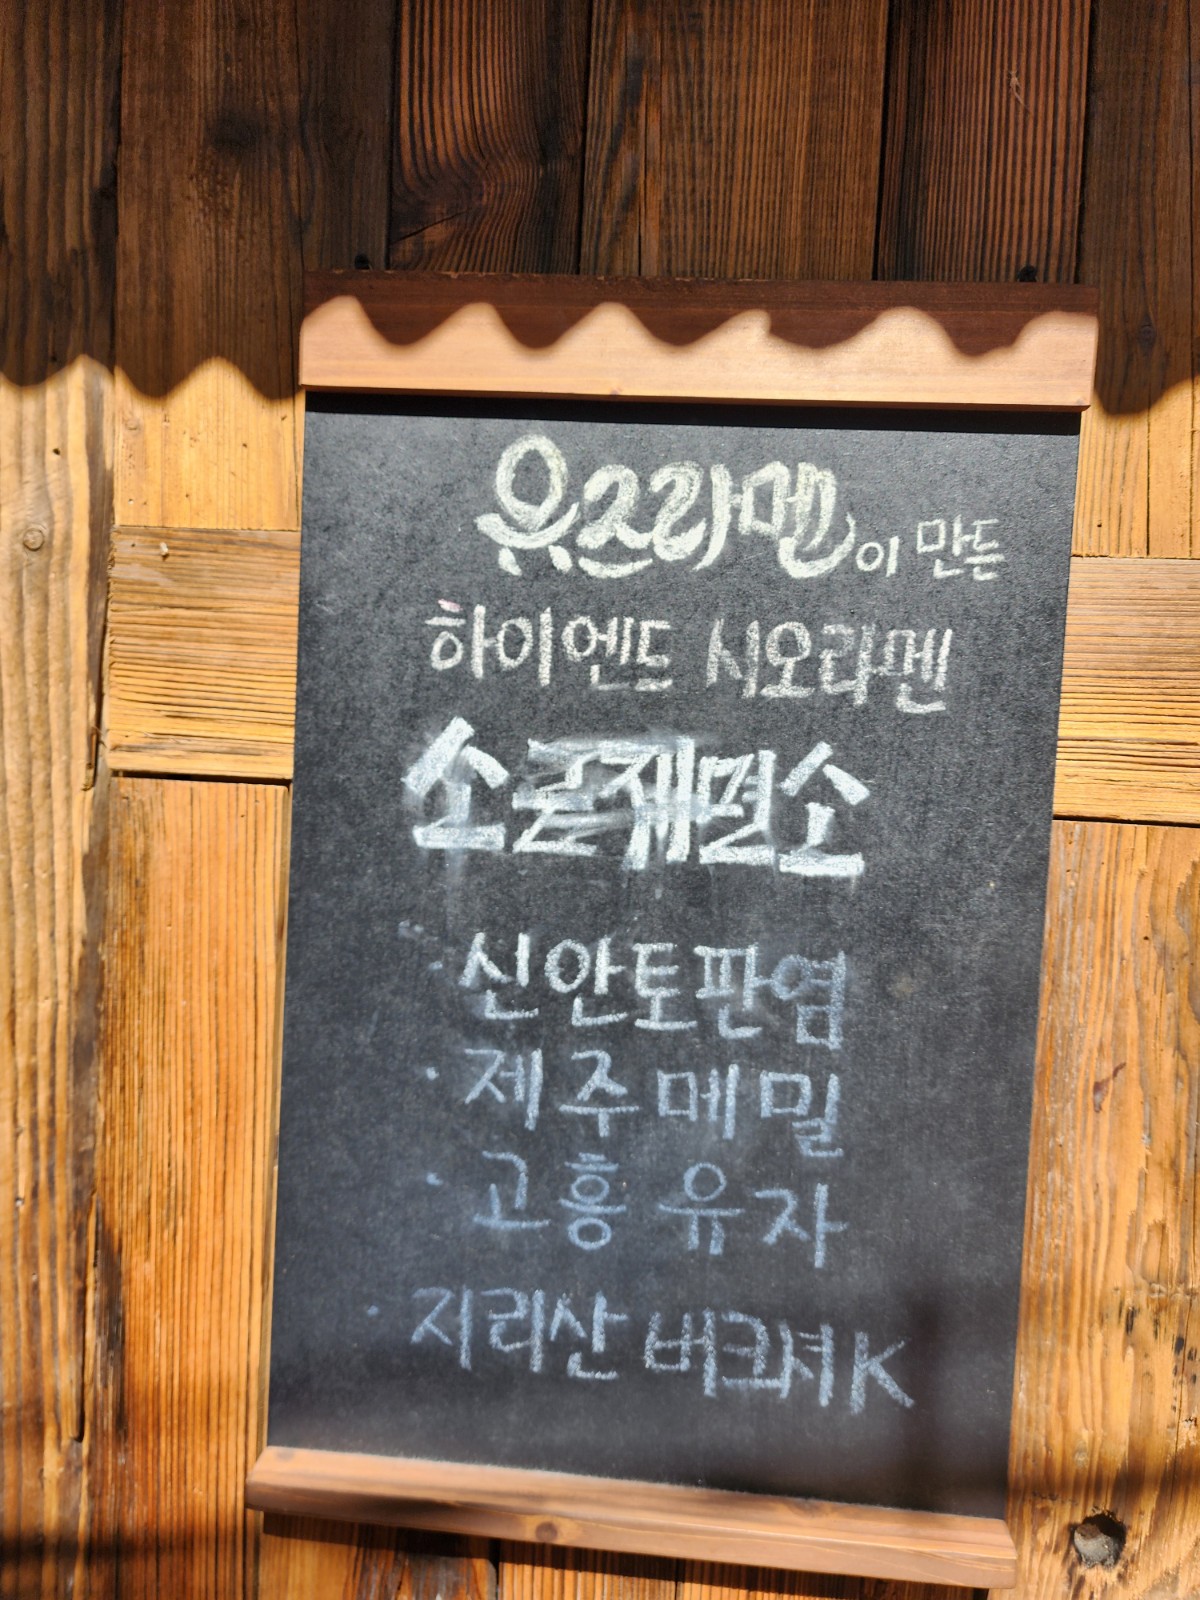 유즈라멘이 만든
하이엔드 시오라멘
소금재면소
· 신안토판염
· 제주메밀
· 고흥 유자
· 지리산 버크셔K